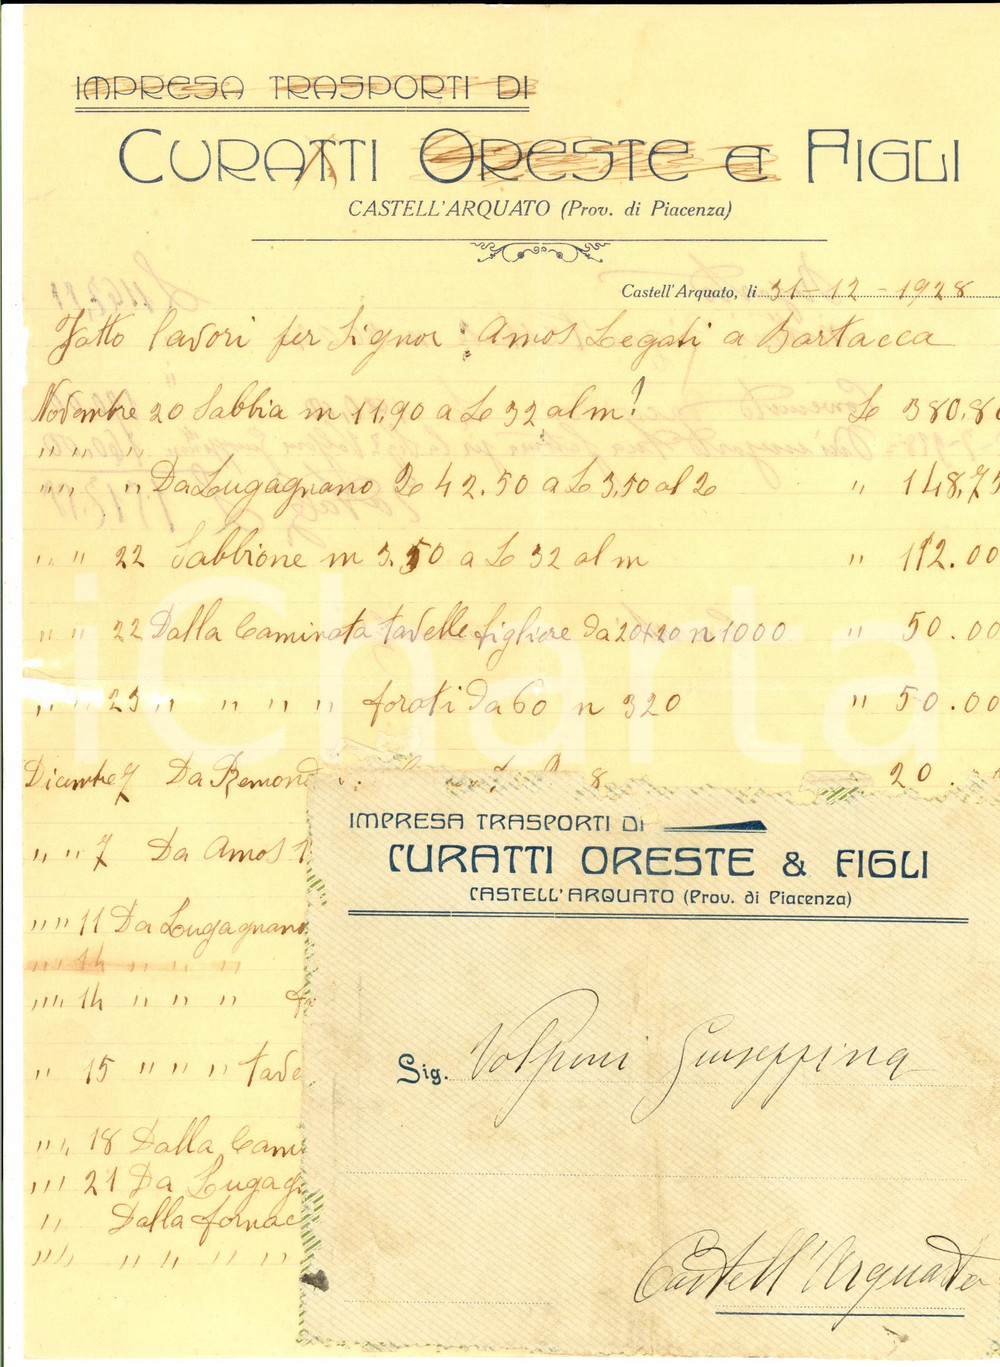 IMPRESA TRASPORTI DI
CURATTI ORESTE E FIGLI
CASTELL'ARQUATO (Prov. di Piacenza)
Castell'Arquato, li 31-12-1928
Fatto lavori per Signor Amos Legati a Bartacca
Novembre 20 Sabbia m 11,90 a Le 32 al m³ Le 380.80
" " "
" " " Da Lugagnano 2e 42.50 a Le 3,50 al 2e " 148,75
" " 22 Sabbione m 3.50 a Le 32 al m " 112.00
" " 22 Dalla Caminata tavelle figliere da 20x20 n 1000 " 50.00
" " 23 " " " " forati da 60 n 320 " 50.00
Dicembre 7 Da Remond 8 20.
" " 7 Da Amos
" " 11 Da Lugagnano
" " 14 " " "
" " 14 " " "
" 15 " " " " tave
" " 18 Dalla Cami
" " 21 Da Lugag
" Dalla fornac
" " " " " " "
IMPRESA TRASPORTI DI
CURATTI ORESTE & FIGLI
CASTELL'ARQUATO (Prov. di Piacenza)
Sig. Volponi Giuseppina
Castell'Arquato
iCharta